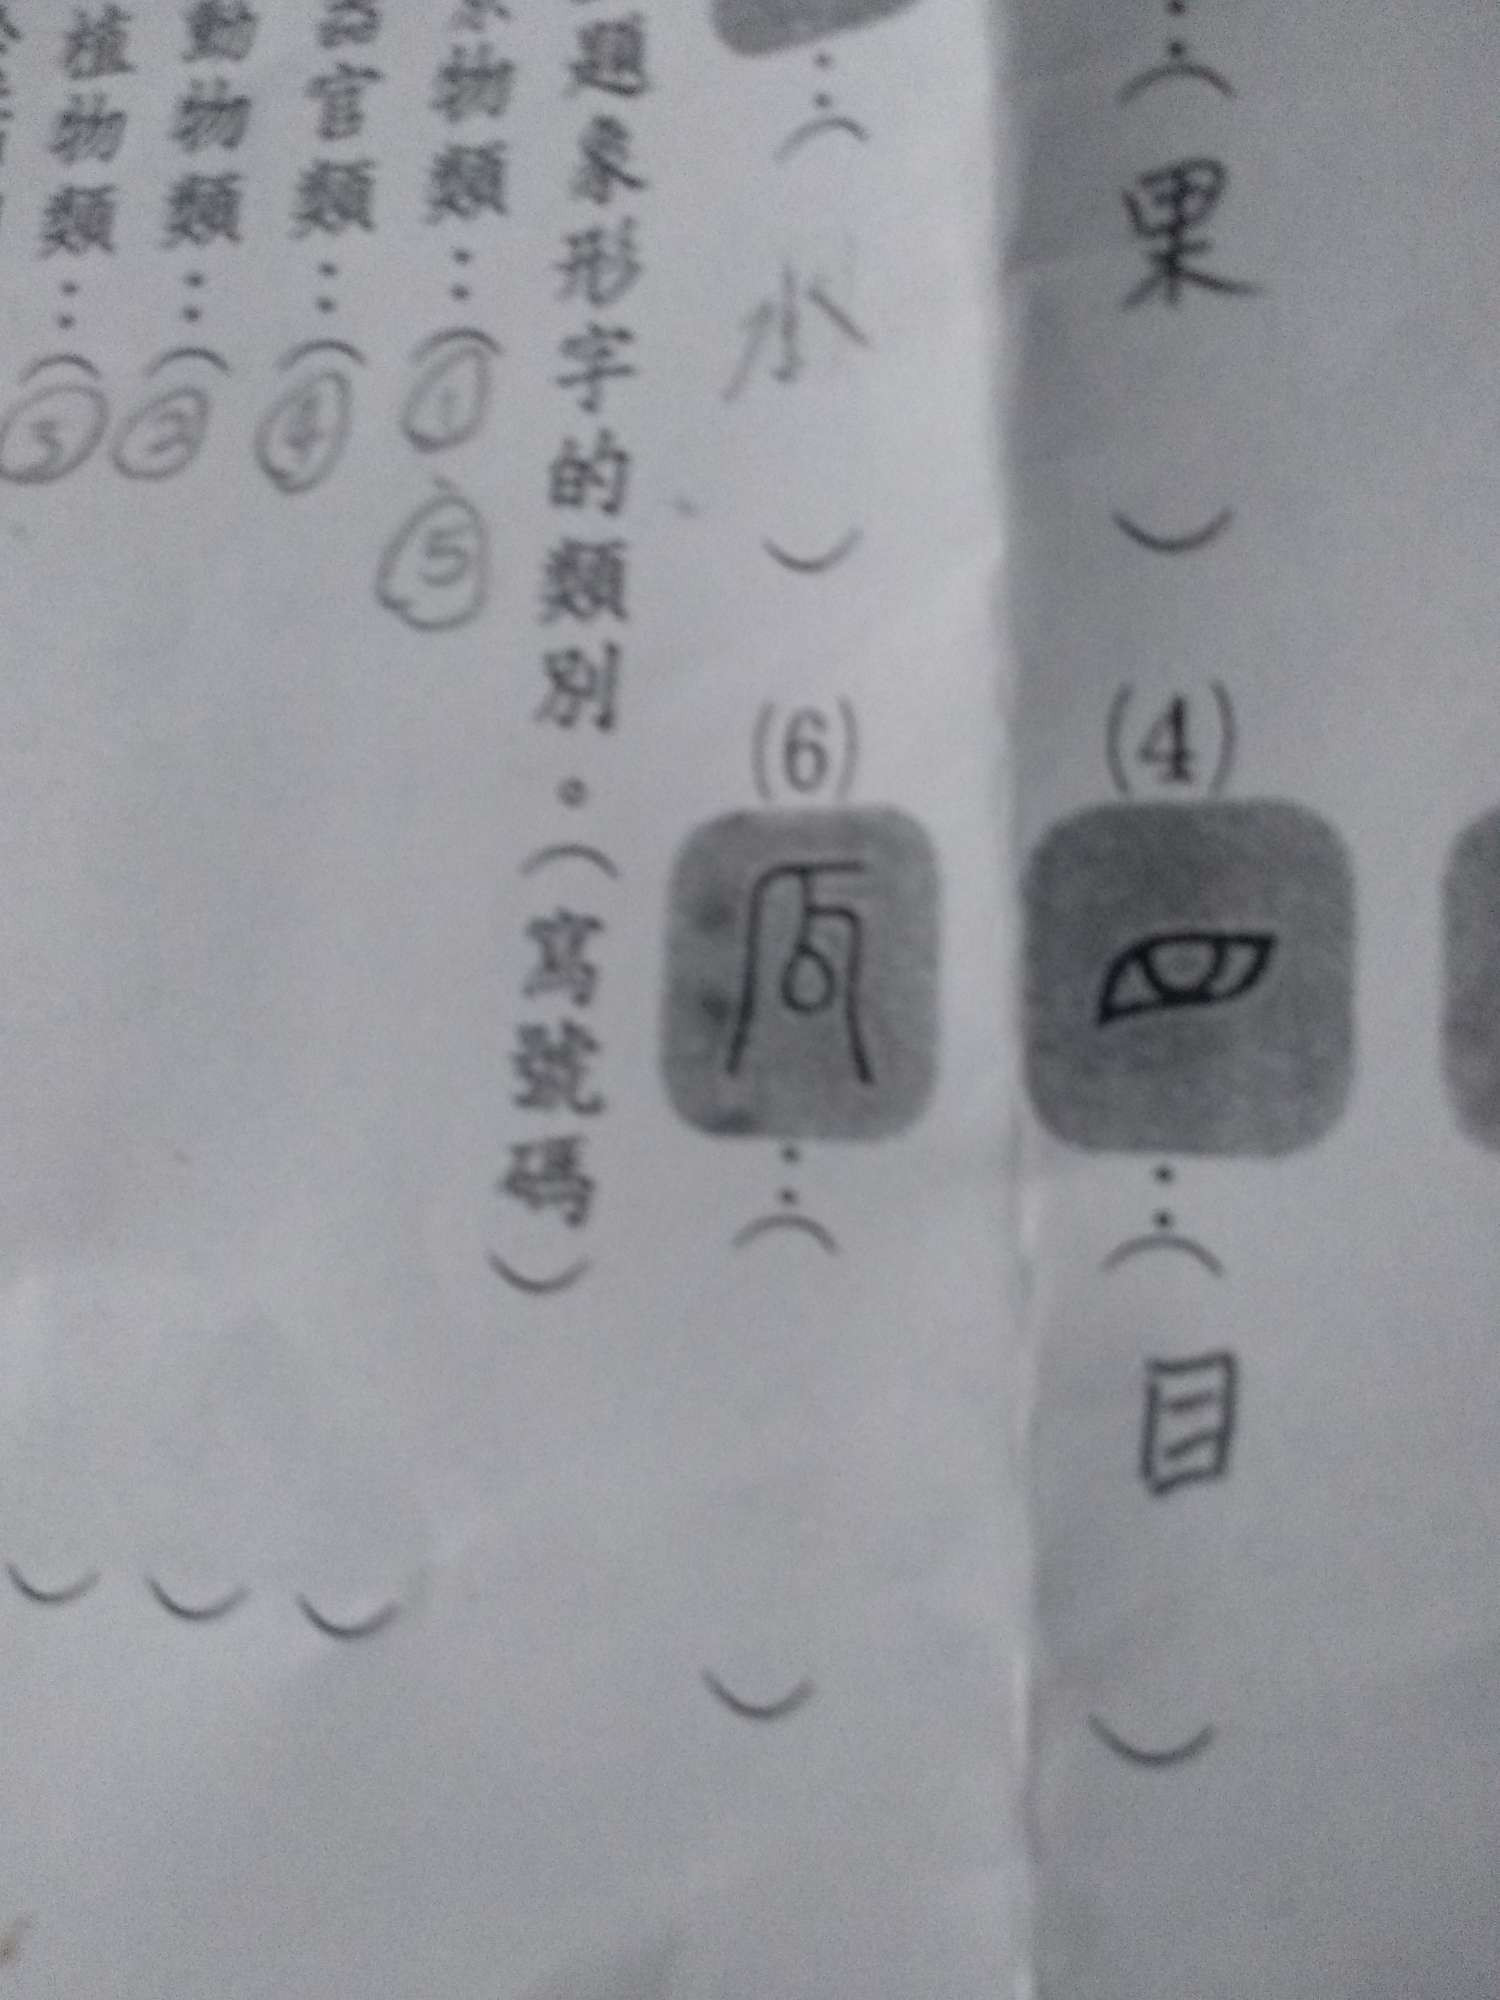 ：（果）
(4)：（目）
：（水）
(6)：（）
題象形字的類別。（寫號碼）
物類：（①、⑤
官類：（④）
動物類：（②）
植物類：（③）